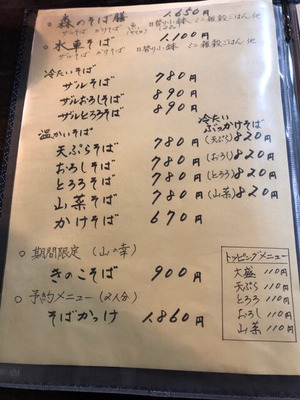 ○ 森のそば膳 1.650円
ザルそば かけそば 日替り小鉢 ミニ雑穀ごはん 他
○ 水車そば 1.100円
ザルそば かけそば 日替り小鉢 ミニ雑穀ごはん 他
冷たいそば
ザルそば 780円
ザルおろしそば 890円
ザルとろろそば 890円
温かいそば
天ぷらそば 780円
おろしそば 780円
とろろそば 780円
山菜そば 780円
かけそば 670円
冷たい
ぶっかけそば
(天ぷら) 820円
(おろし) 820円
(とろろ) 820円
(山菜) 820円
○ 期間限定 (山の幸)
きのこそば 900円
○ 予約メニュー (2人分)
そばがっけ 1.860円
トッピングメニュー
大盛 110円
天ぷら 110円
とろろ 110円
おろし 110円
山菜 110円